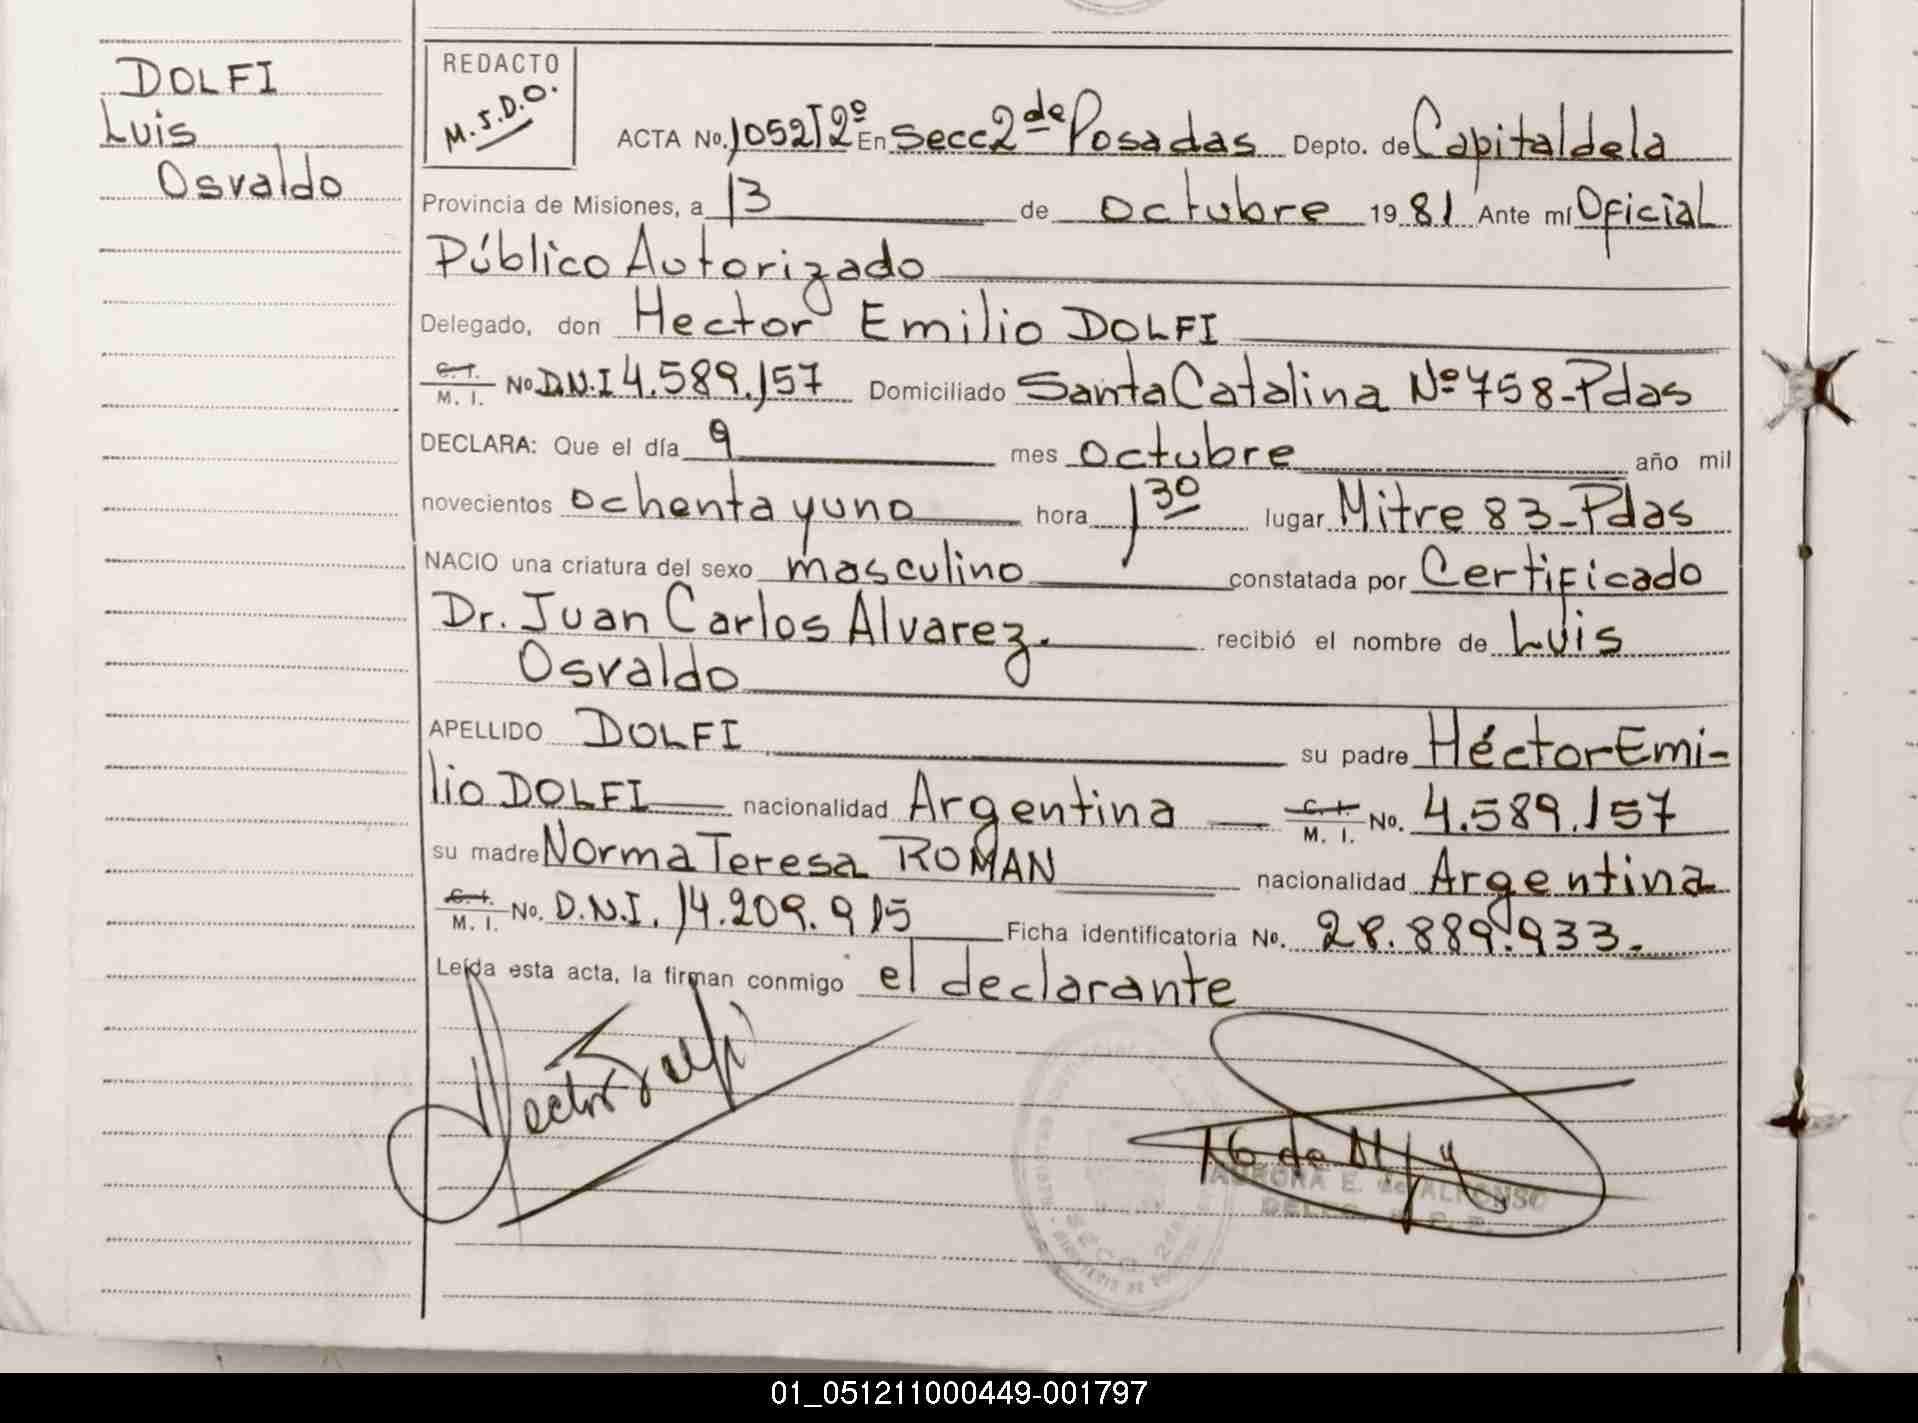 DOLFI
Luis
Osvaldo
REDACTO
M.S.D.O.
ACTA No. 1052T2º En Secc 2da Posadas Depto. de Capital de la
Provincia de Misiones, a 13 de octubre 1981 Ante mí Oficial
Público Autorizado
Delegado, don Hector Emilio DOLFI
C. I. / M. I. No D.N.I 4.589.157 Domiciliado Santa Catalina Nº 758-Pdas
DECLARA: Que el día 9 mes octubre año mil
novecientos ochenta y uno hora 1 30 lugar Mitre 83-Pdas
NACIO una criatura del sexo masculino constatada por Certificado
Dr. Juan Carlos Alvarez. recibió el nombre de Luis
Osvaldo
APELLIDO DOLFI su padre Héctor Emi-
lio DOLFI nacionalidad Argentina C. I. / M. I. No. 4.589.157
su madre Norma Teresa ROMAN nacionalidad Argentina
C. I. / M. I. No. D.N.I. 14.209.915 Ficha identificatoria No. 28.889.933.
Leída esta acta, la firman conmigo el declarante
Hector Dolfi
AURORA E. de ALFONSO
SECC. 2da
01_051211000449-001797